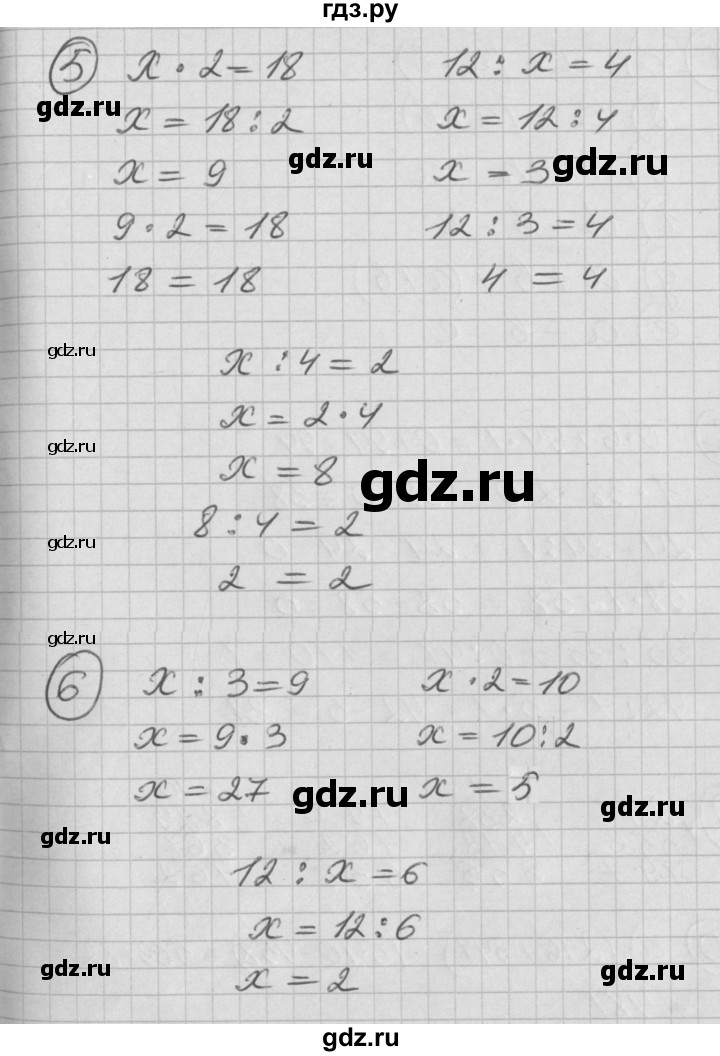 гдз.ру
5 x · 2 = 18 12 : x = 4
gdz.ru
x = 18 : 2 x = 12 : 4
gdz.ru gdz.ru
x = 9 x = 3
9 · 2 = 18 12 : 3 = 4
18 = 18 4 = 4
gdz.ru
x : 4 = 2
x = 2 · 4
gdz.ru
x = 8
gdz.ru
8 : 4 = 2
gdz.ru
2 = 2
gdz.ru
6 x : 3 = 9 x · 2 = 10
x = 9 · 3 x = 10 : 2
x = 27 x = 5
gdz.ru gdz.ru
gdz.ru
12 : x = 6
x = 12 : 6
gdz.ru gdz.ru
x = 2
gdz.ru